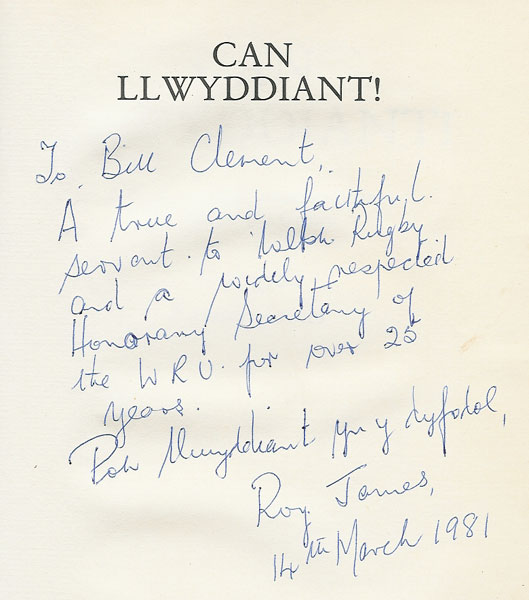 CAN
LLWYDDIANT!
To Bill Clement,
A true and faithful
servant to Welsh Rugby
and a widely respected
Honorary Secretary of
the W R U for over 25
years.
Pob llwyddiant yn y dyfodol,
Roy James,
14th March 1981